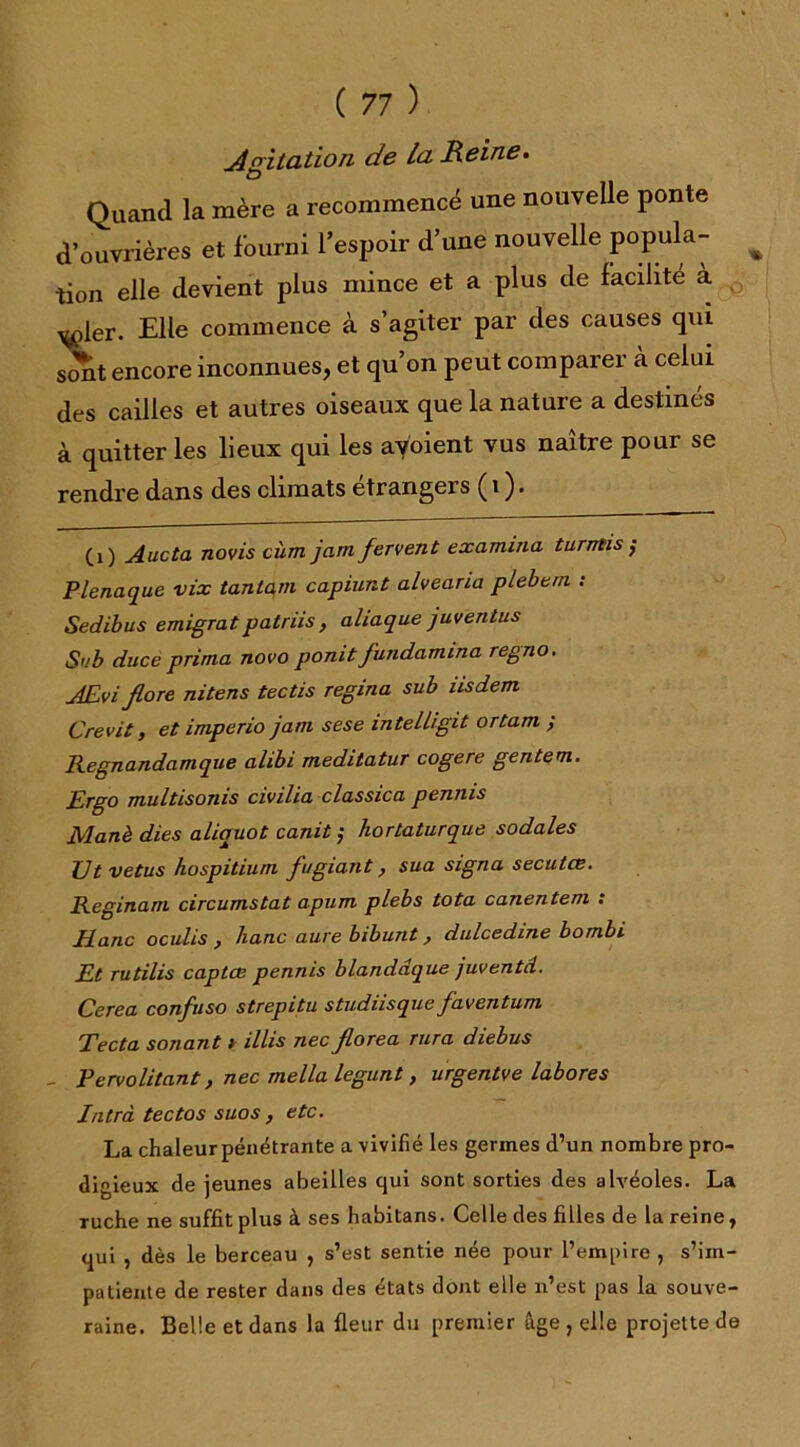 ( 77 )
Agitation de la Reine.
Quand la mère a recommencé une nouvelle ponte
d'ouvrières et fourni l'espoir d'une nouvelle popula-
tion elle devient plus mince et a plus de facilité à
voler. Elle commence à s'agiter par des causes qui
sont encore inconnues, et qu'on peut comparer à celui
des cailles et autres oiseaux que la nature a destinés
à quitter les lieux qui les avoient vus naître pour se
rendre dans des climats étrangers (1).
(1) Aucta novis cùm jam fervent examina turmis ;
Plenaque vix tantam capiunt alvearia plebem :
Sedibus emigrat patriis, aliaque juventus
Sub duce prima novo ponit fundamina regno.
Ævi flore nitens tectis regina sub iisdem
Crevit, et imperio jam sese intelligit ortam ;
Regnandamque alibi meditatur cogere gentem.
Ergo multisonis civilia classica pennis
Manè dies aliquot canit ; hortaturque sodales
Ut vetus hospitium fugiant, sua signa secutæ.
Reginam circumstat apum plebs tota canentem :
Hanc oculis, hanc aure bibunt, dulcedine bombi
Et rutilis captæ pennis blandâque juventâ.
Cerea confuso strepitu studiisque faventum
Tecta sonant ; illis nec florea rura diebus
Pervolitant, nec mella legunt, urgentve labores
Intrà tectos suos, etc.
La chaleur pénétrante a vivifié les germes d'un nombre pro-
digieux de jeunes abeilles qui sont sorties des alvéoles. La
ruche ne suffit plus à ses habitans. Celle des filles de la reine,
qui, dès le berceau, s'est sentie née pour l'empire, s'im-
patiente de rester dans des états dont elle n'est pas la souve-
raine. Belle et dans la fleur du premier âge, elle projette de